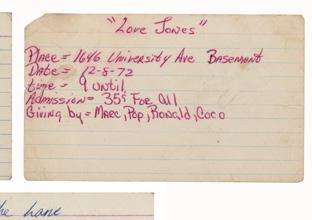 "Love Jones"
Place = 1646 University Ave Basement
Date = 12-8-72
time = 9 until
Admission = 35¢ For All
Giving by = Marc, Pop, Ronald, Coco
the lane